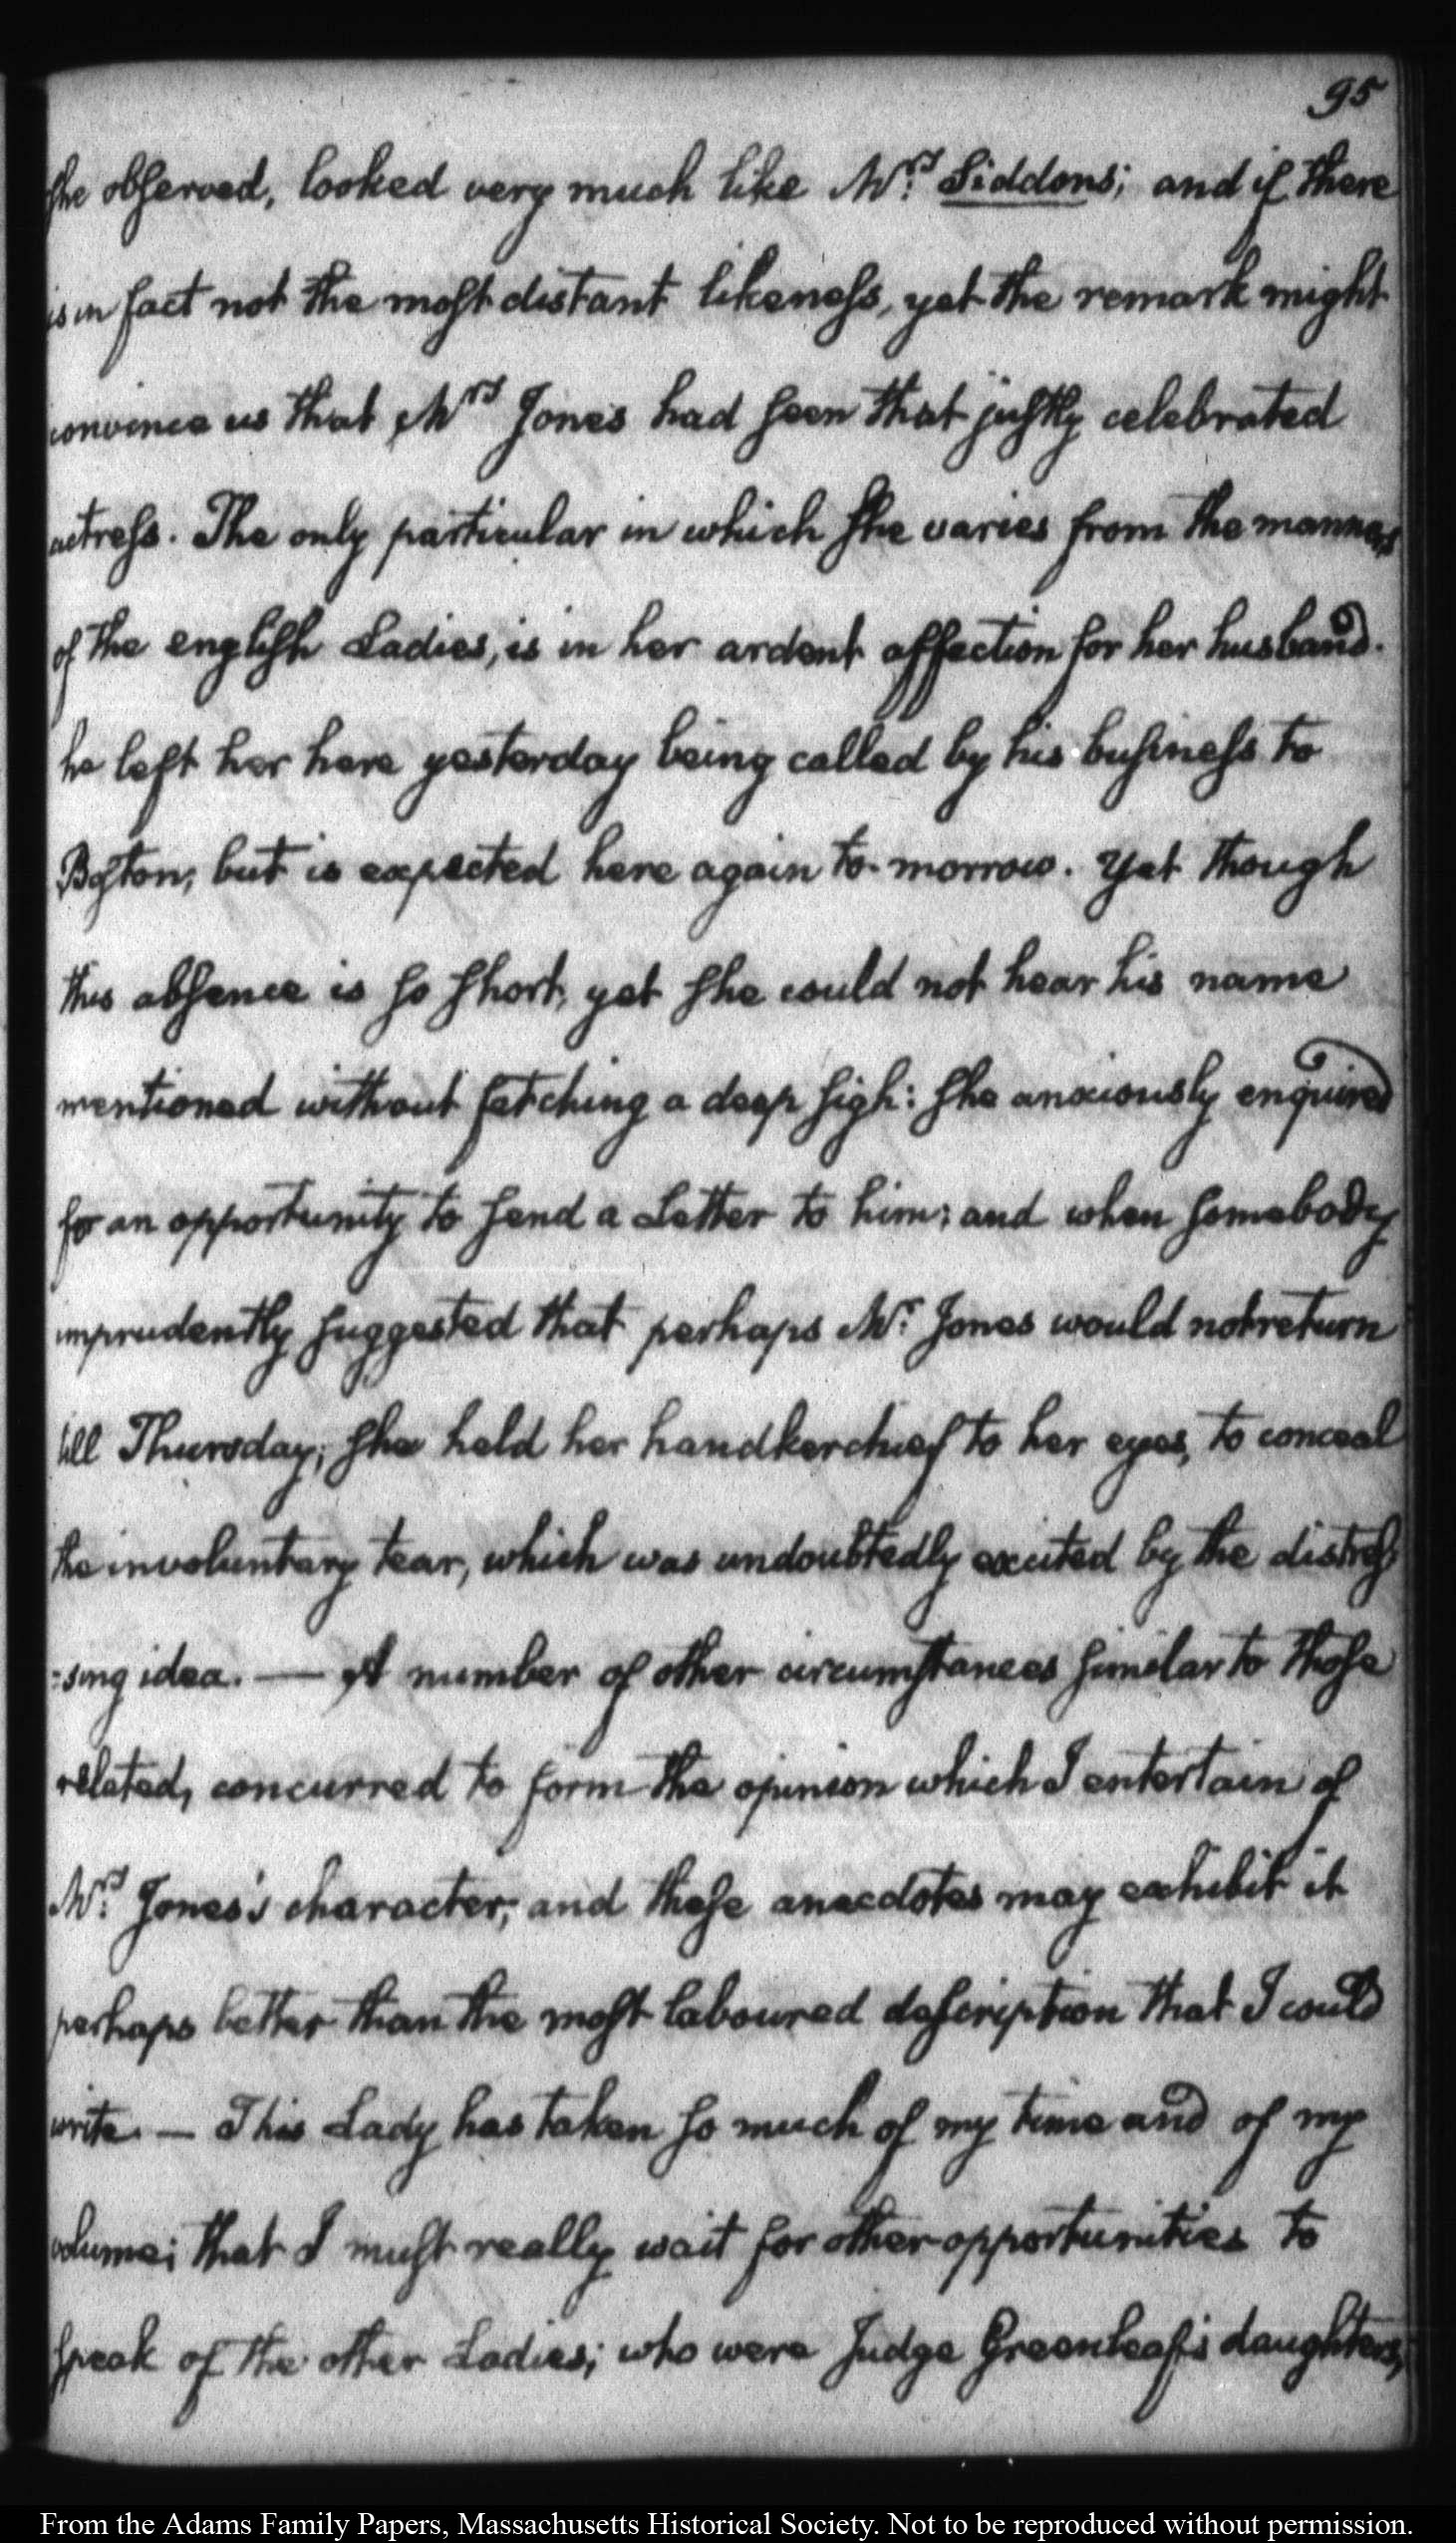 95
she observed, looked very much like Mrs. Siddons; and if there
is in fact not the most distant likeness, yet the remark might
convince us that Mrs Jones had seen that justly celebrated
actress. The only particular in which she varies from the manners
of the english Ladies, is in her ardent affection for her husband.
he left her here yesterday being called by his business to
Boston, but is expected here again to-morrow. Yet though
this absence is so short, yet she could not hear his name
mentioned without fetching a deep sigh: she anxiously enquired
for an opportunity to send a Letter to him; and when somebody
imprudently suggested that perhaps Mr. Jones would not return
till Thursday; she held her handkerchief to her eyes, to conceal
the involuntary tear, which was undoubtedly excited by the distres
=sing idea. — A number of other circumstances similar to those
related, concurred to form the opinion which I entertain of
Mrs. Jones's character; and these anecdotes may exhibit it
perhaps better than the most laboured description that I could
write. — This Lady has taken so much of my time and of my
volume; that I must really wait for other opportunities to
speak of the other Ladies; who were Judge Greenleaf's daughters,
From the Adams Family Papers, Massachusetts Historical Society. Not to be reproduced without permission.